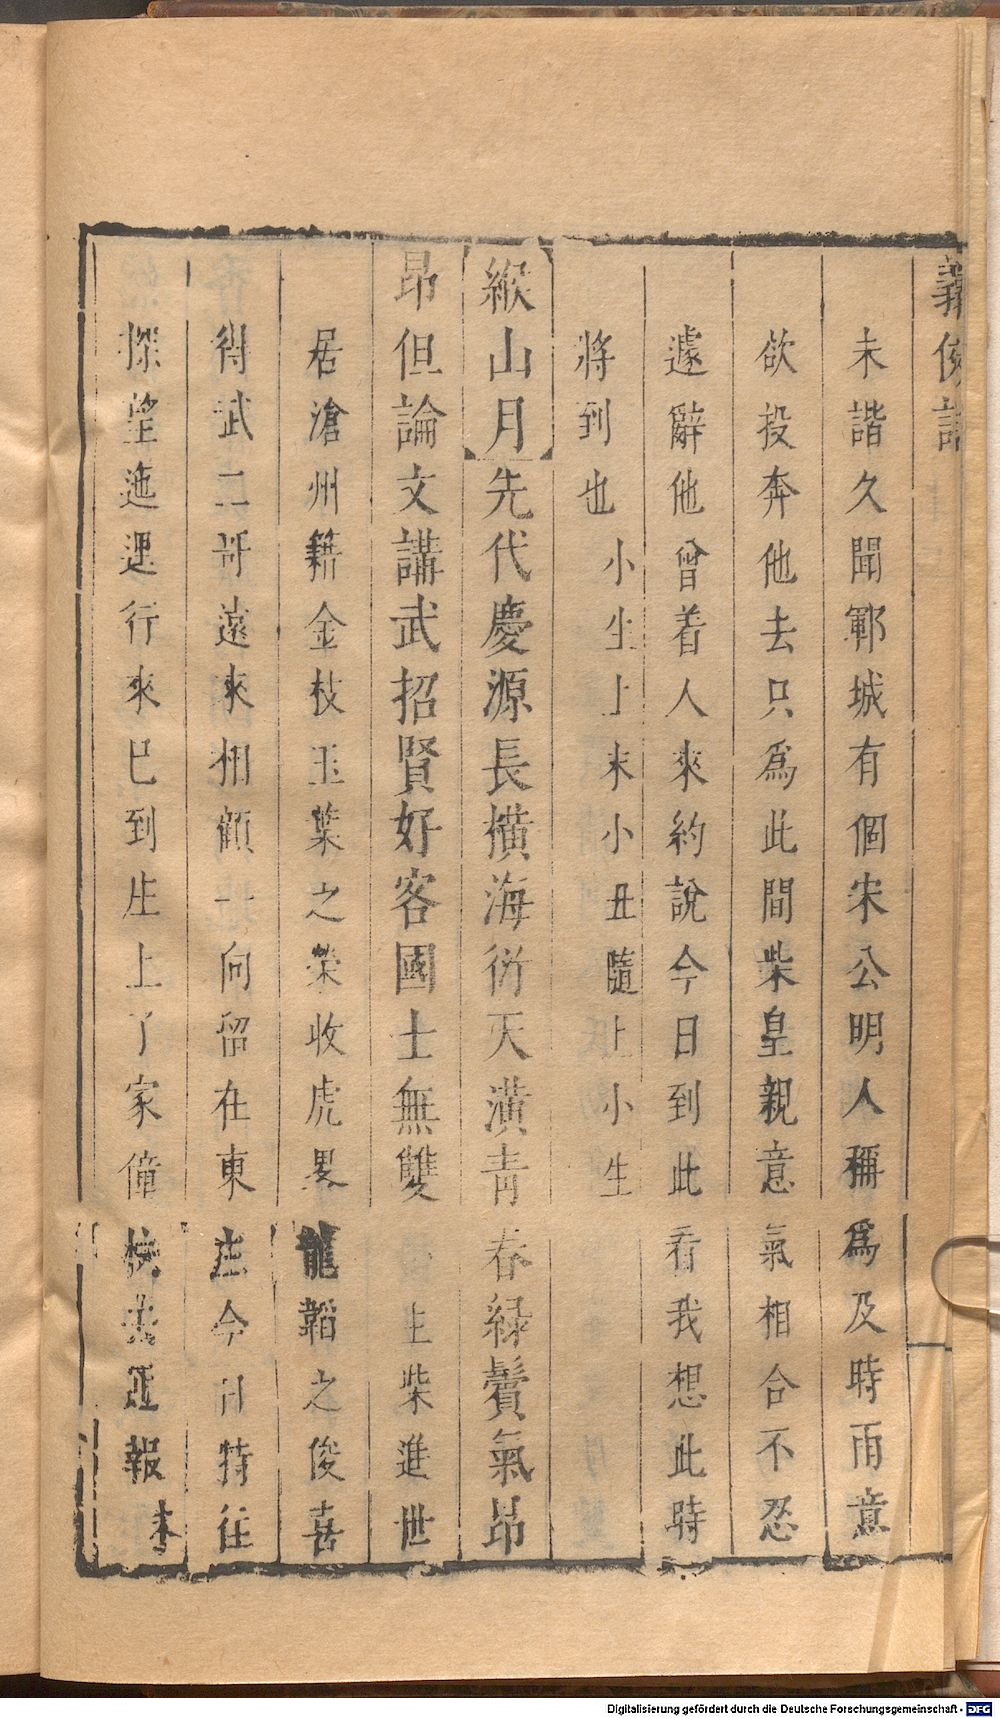 義俠記
未諧久聞鄆城有個宋公明人稱爲及時雨意
欲投奔他去只爲此間柴皇親意氣相合不忍
遽辭他曾着人來約說今日到此看我想此時
將到也小生上末小丑隨上小生
緱山月先代慶源長橫海衍天潢青春緑鬢氣昂
昂但論文講武招賢好客國士無雙 生柴進世
居滄州籍金枝玉葉之榮收虎畧龍韜之俊喜
得武二哥遠來相顧一向留在東庄今日特往
探望迤邐行來已到庄上了家僮快去通報末
Digitalisierung gefördert durch die Deutsche Forschungsgemeinschaft - DFG